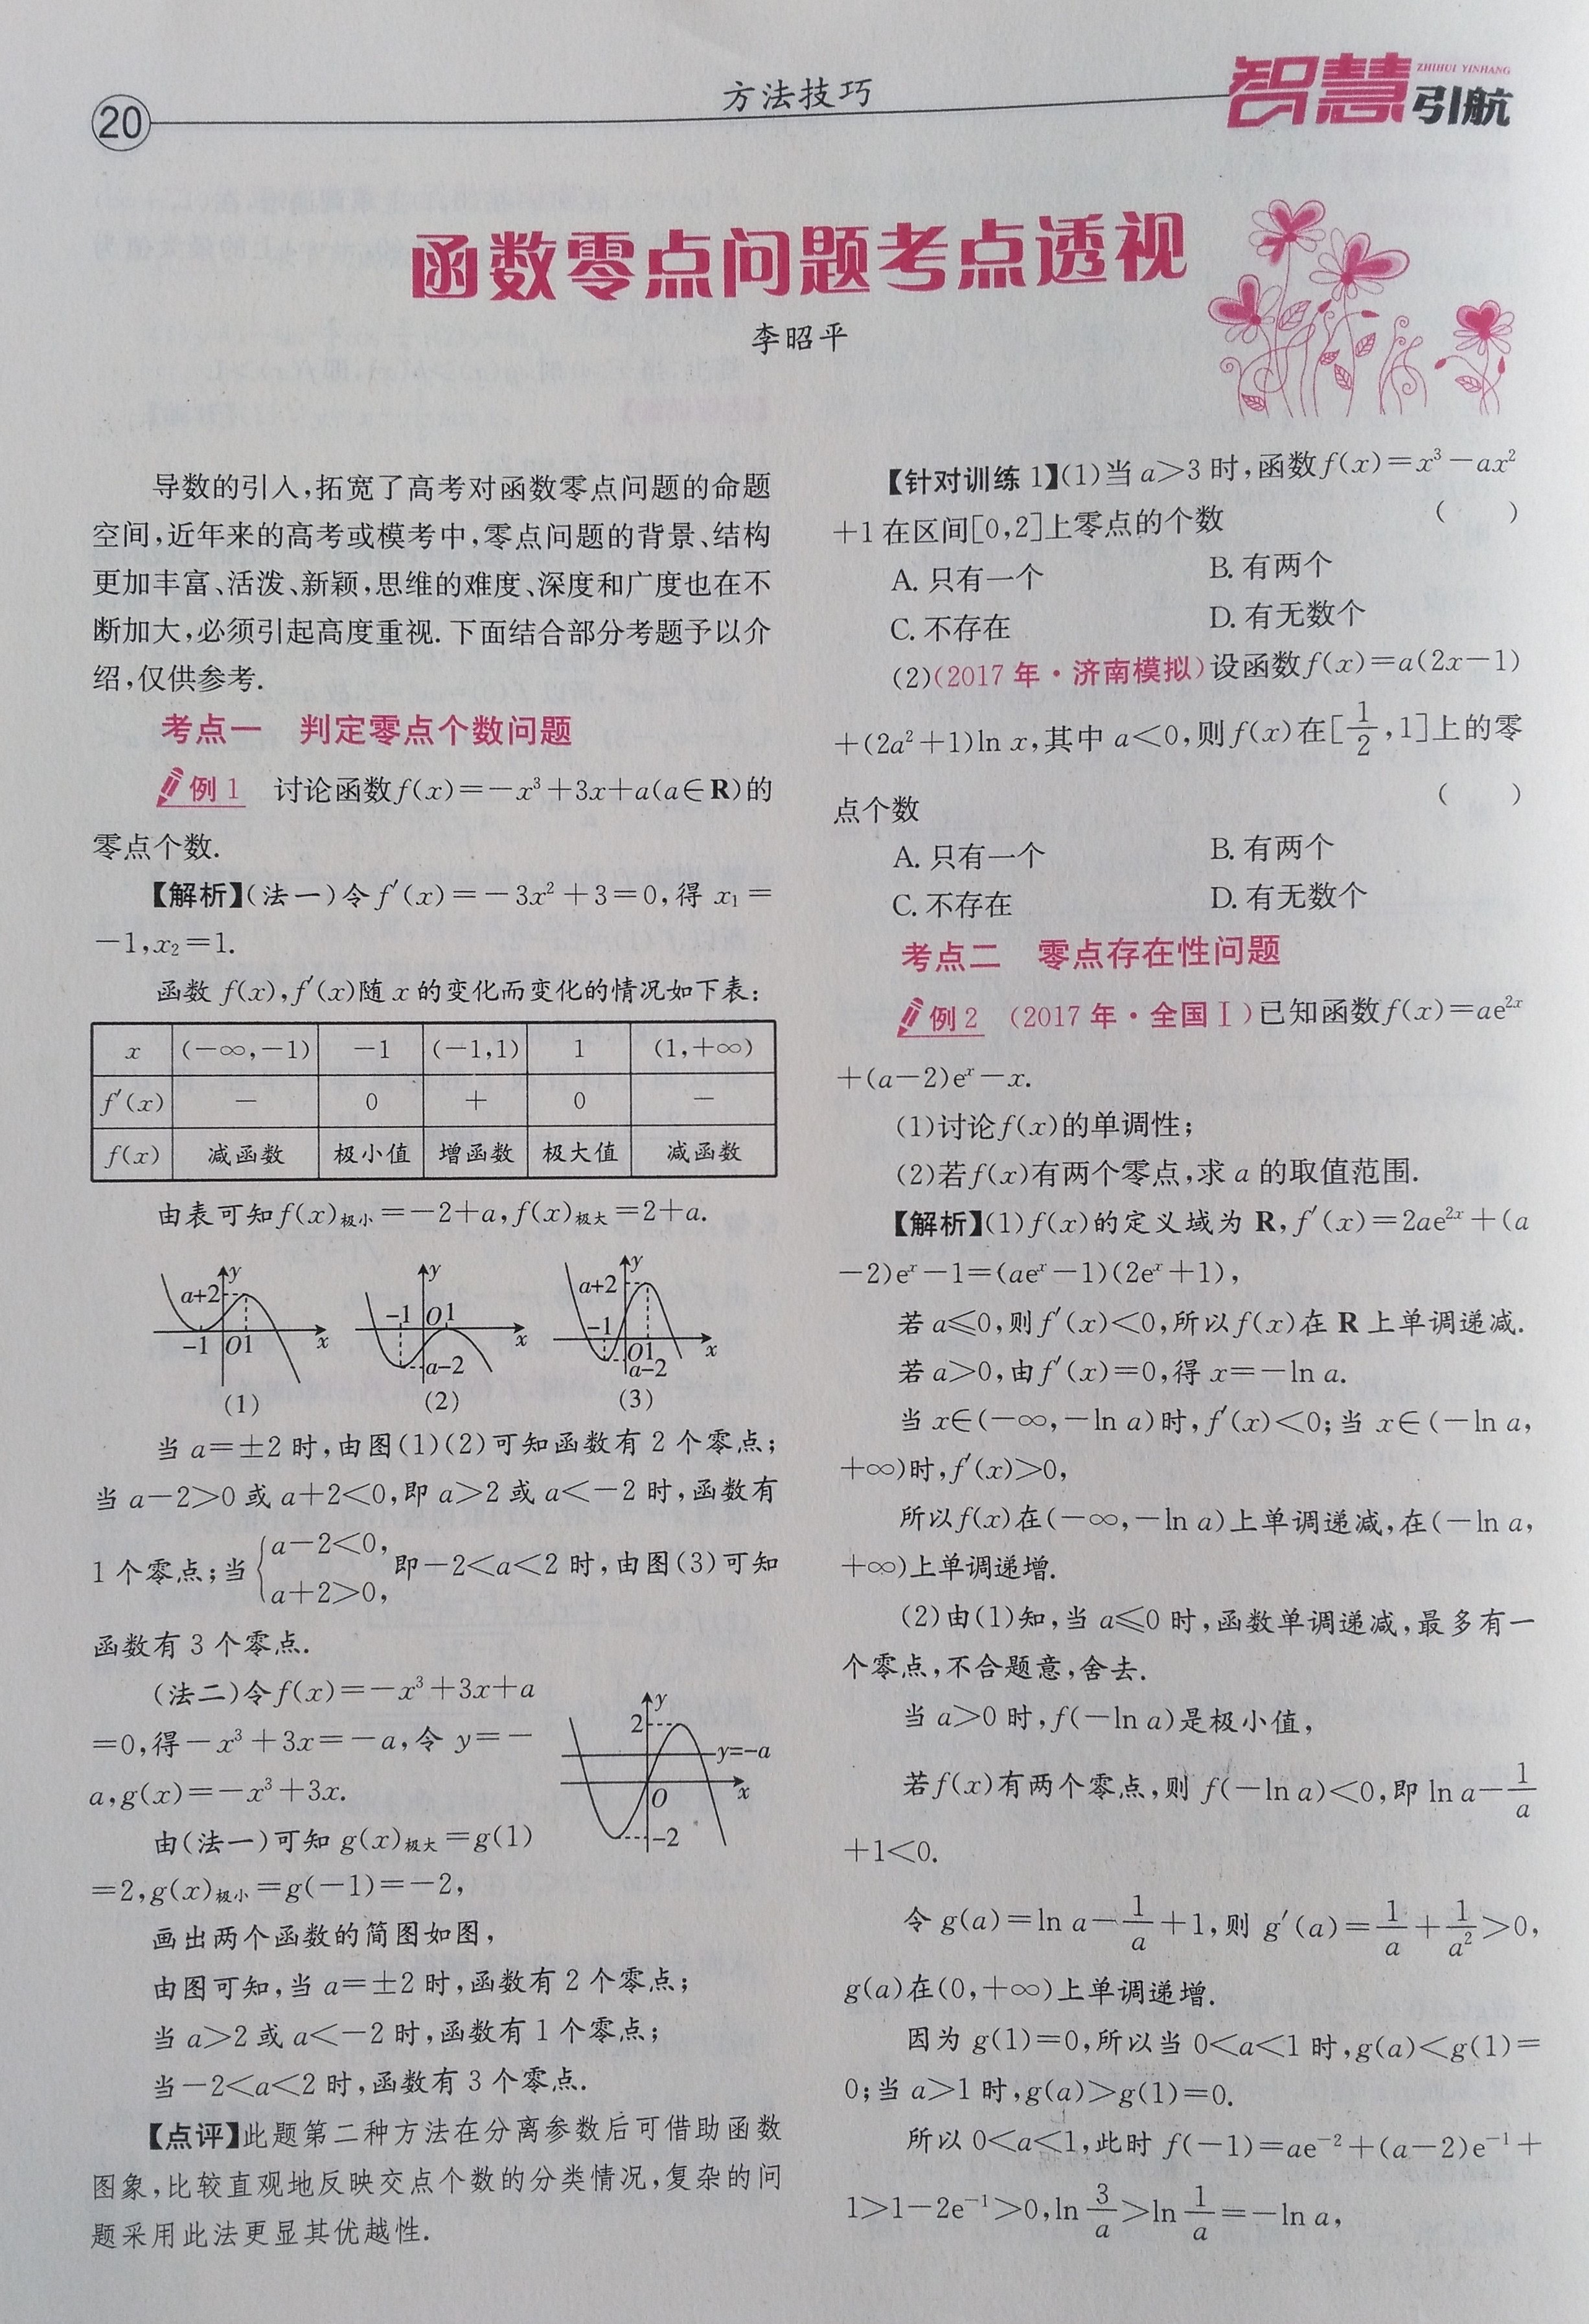 20
方法技巧
智慧引航
ZHIHUI YINHANG
函数零点问题考点透视
李昭平
导数的引入,拓宽了高考对函数零点问题的命题
空间,近年来的高考或模考中,零点问题的背景、结构
更加丰富、活泼、新颖,思维的难度、深度和广度也在不
断加大,必须引起高度重视.下面结合部分考题予以介
绍,仅供参考.
考点一 判定零点个数问题
例1 讨论函数f(x)=-x³+3x+a(a∈R)的
零点个数.
【解析】(法一)令f′(x)=-3x²+3=0,得x₁=
-1,x₂=1.
函数f(x),f′(x)随x的变化而变化的情况如下表:
x (-∞,-1) -1 (-1,1) 1 (1,+∞)
f′(x) - 0 + 0 -
f(x) 减函数 极小值 增函数 极大值 减函数
由表可知f(x)极小=-2+a,f(x)极大=2+a.
a+2 y -1 O 1 x
(1)
y -1 O 1 x a-2
(2)
y a+2 -1 O 1 x a-2
(3)
当a=±2时,由图(1)(2)可知函数有2个零点;
当a-2>0或a+2<0,即a>2或a<-2时,函数有
1个零点;当{a-2<0, a+2>0, 即-2<a<2时,由图(3)可知
函数有3个零点.
(法二)令f(x)=-x³+3x+a
=0,得-x³+3x=-a,令y=-
a,g(x)=-x³+3x.
由(法一)可知g(x)极大=g(1)
=2,g(x)极小=g(-1)=-2,
y 2 y=-a O x -2
画出两个函数的简图如图,
由图可知,当a=±2时,函数有2个零点;
当a>2或a<-2时,函数有1个零点;
当-2<a<2时,函数有3个零点.
【点评】此题第二种方法在分离参数后可借助函数
图象,比较直观地反映交点个数的分类情况,复杂的问
题采用此法更显其优越性.
【针对训练1】(1)当a>3时,函数f(x)=x³-ax²
+1在区间[0,2]上零点的个数 ( )
A.只有一个 B.有两个
C.不存在 D.有无数个
(2)(2017年·济南模拟)设函数f(x)=a(2x-1)
+(2a²+1)ln x,其中a<0,则f(x)在[1/2,1]上的零
点个数 ( )
A.只有一个 B.有两个
C.不存在 D.有无数个
考点二 零点存在性问题
例2 (2017年·全国Ⅰ)已知函数f(x)=ae²ˣ
+(a-2)eˣ-x.
(1)讨论f(x)的单调性;
(2)若f(x)有两个零点,求a的取值范围.
【解析】(1)f(x)的定义域为R,f′(x)=2ae²ˣ+(a
-2)eˣ-1=(aeˣ-1)(2eˣ+1),
若a≤0,则f′(x)<0,所以f(x)在R上单调递减.
若a>0,由f′(x)=0,得x=-ln a.
当x∈(-∞,-ln a)时,f′(x)<0;当x∈(-ln a,
+∞)时,f′(x)>0,
所以f(x)在(-∞,-ln a)上单调递减,在(-ln a,
+∞)上单调递增.
(2)由(1)知,当a≤0时,函数单调递减,最多有一
个零点,不合题意,舍去.
当a>0时,f(-ln a)是极小值,
若f(x)有两个零点,则f(-ln a)<0,即ln a-1/a
+1<0.
令g(a)=ln a-1/a+1,则g′(a)=1/a+1/a²>0,
g(a)在(0,+∞)上单调递增.
因为g(1)=0,所以当0<a<1时,g(a)<g(1)=
0;当a>1时,g(a)>g(1)=0.
所以0<a<1,此时f(-1)=ae⁻²+(a-2)e⁻¹+
1>1-2e⁻¹>0,ln 3/a>ln 1/a=-ln a,